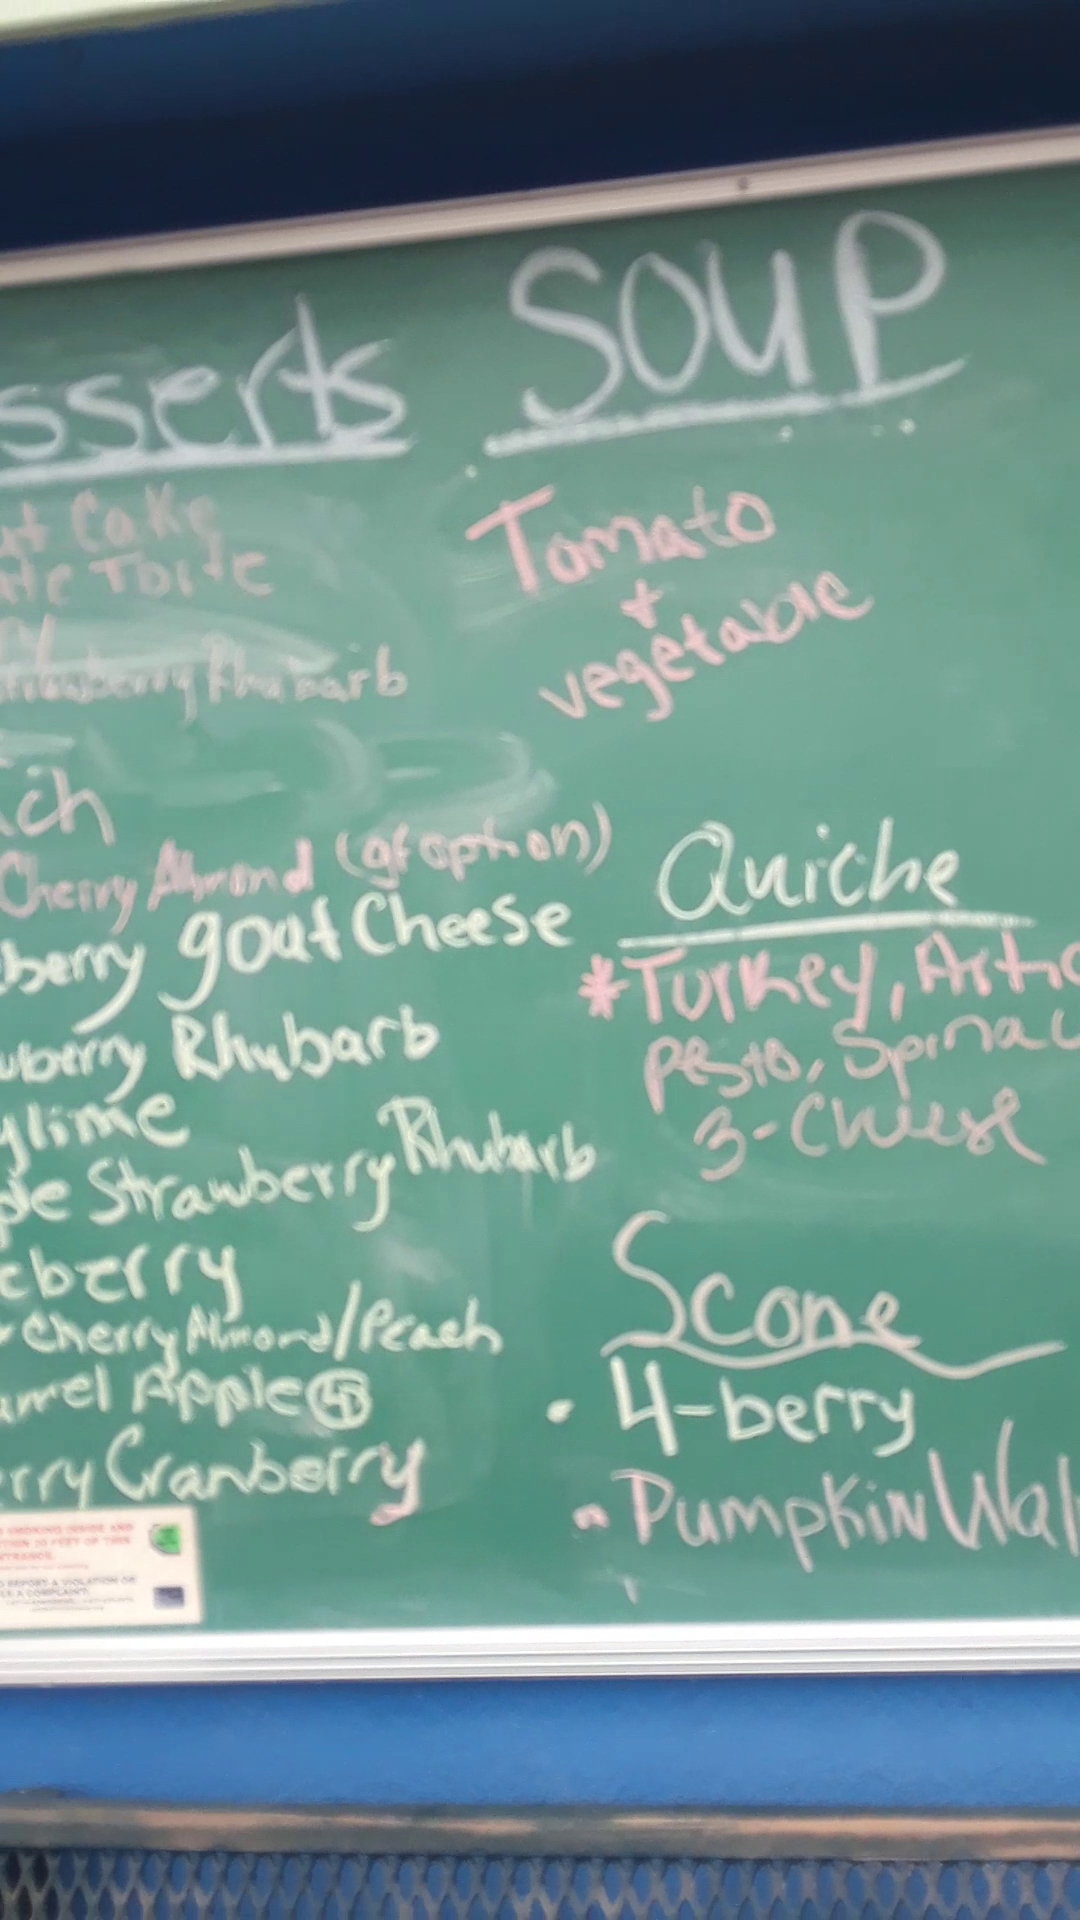 sserts
Cake
Torte
Strawberry Rhubarb
ch
Cherry Almond (gf option)
berry goat Cheese
berry Rhubarb
ylime
ple Strawberry Rhubarb
eberry
Cherry Almond/Peach
amel Apple
erry Cranberry
SOUP
Tomato
+
vegetable
Quiche
*Turkey, Artic
pesto, Spinac
3-Cheese
Scone
• 4-berry
• Pumpkin Wal
SMOKING INSIDE AND
THIN 25 FEET OF THIS
NTRANCE.
O REPORT A VIOLATION OR
A COMPLAINT: